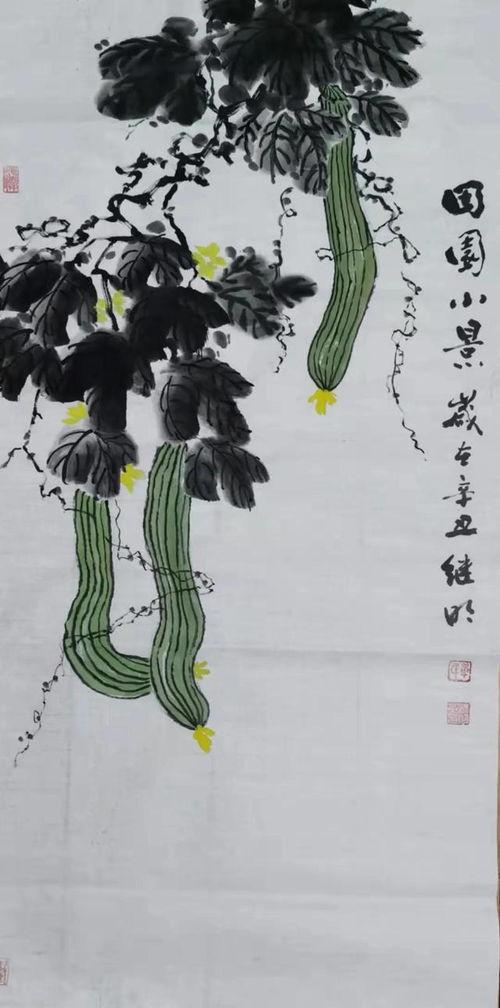 田園小景歲在辛丑继明